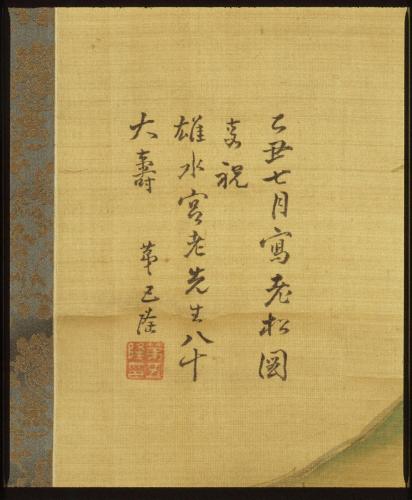 乙丑七月寫老松圖
祝
雄水宮老先生八十
大壽